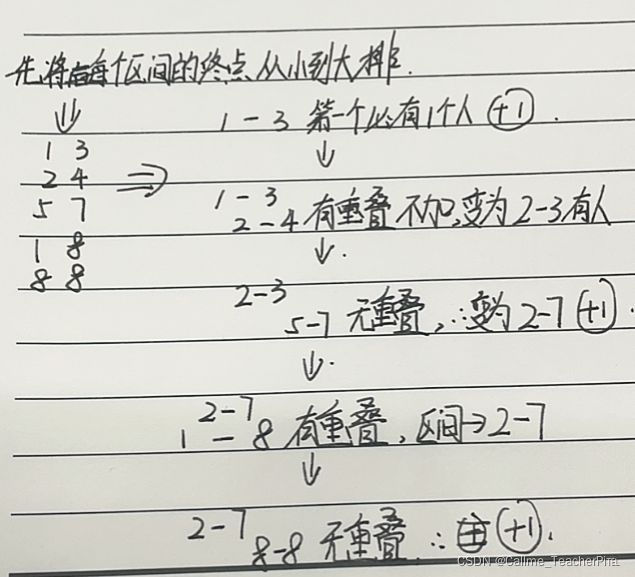 先将每个区间的终点从小到大排.
1 3
2 4
5 7
1 8
8 8
1-3 第一个必有1个人 +1.
1-3
2-4 有重叠不加,变为2-3有人
2-3
5-7 无重叠,∴变为2-7 +1.
2-7
1-8 有重叠,区间→2-7
2-7
8-8 无重叠 ∴ +1.
CSDN @Callme_TeacherPi